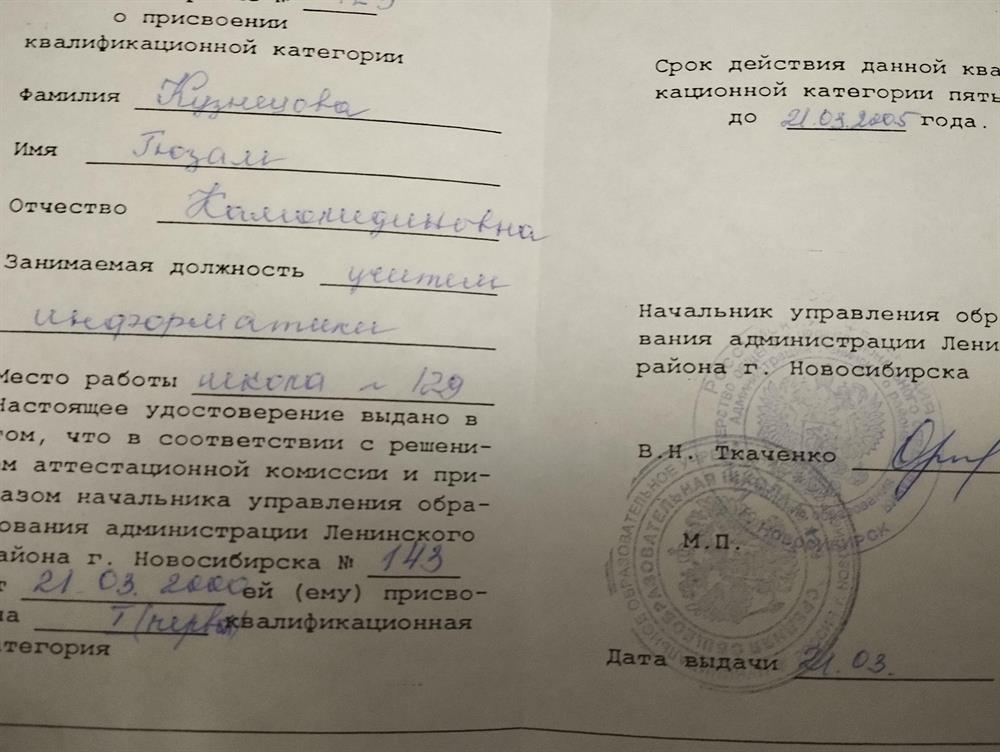 о присвоении
квалификационной категории
Фамилия Кузнецова
Имя Гюзал
Отчество Камолидиновна
Занимаемая должность учитель
информатики
Место работы школа № 129
Настоящее удостоверение выдано в
том, что в соответствии с решени-
ем аттестационной комиссии и при-
казом начальника управления обра-
зования администрации Ленинского
района г. Новосибирска № 143
от 21.03.2000 ей (ему) присво-
на I (первая) квалификационная
категория
Срок действия данной ква
кационной категории пять
до 21.03.2005 года.
Начальник управления обр
вания администрации Лени
района г. Новосибирска
В.Н. Ткаченко
М.П.
Дата выдачи 21.03.